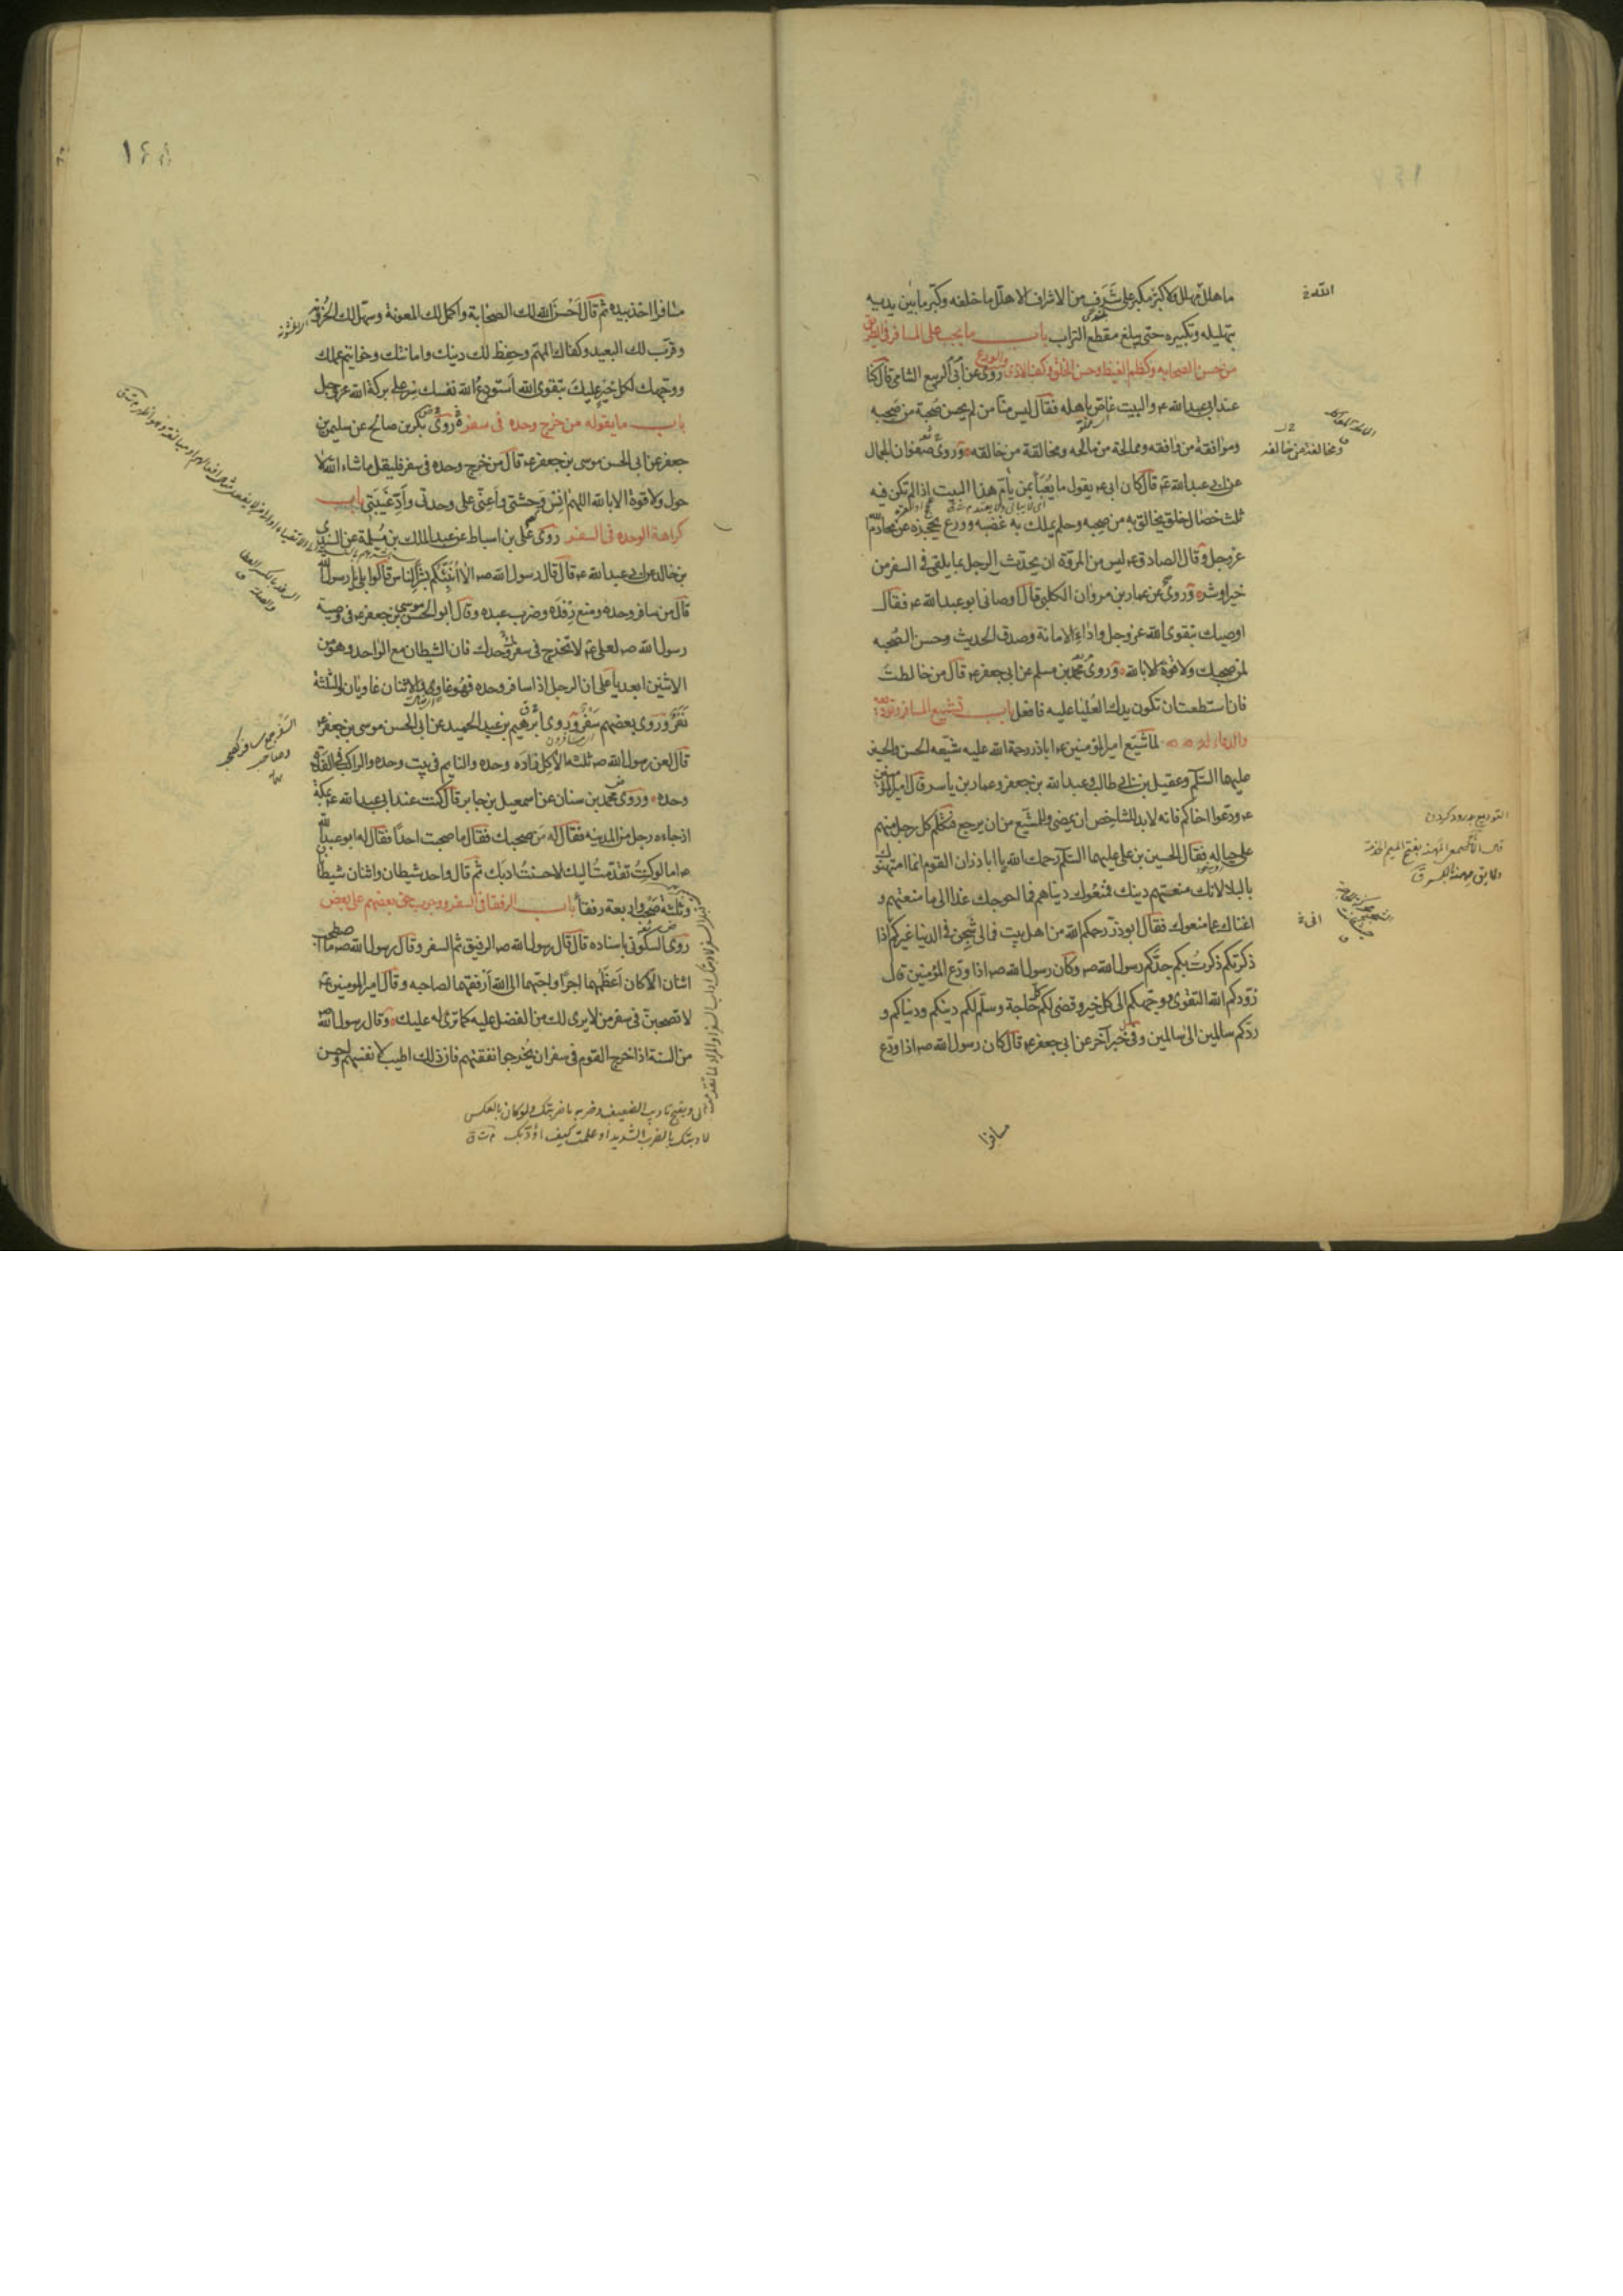 ما هلل مهلل ولا كبر مكبر على شرف من الاشراف الا هلل ما خلفه وكبر ما بين يديه
بتهليله وتكبيره حتى يبلغ مقطع التراب باب ما يجب على المسافر في الطريق
من حسن الصحابه وكظم الغيظ وحسن الخلق وكف الاذى والورع روى عن ابى الربيع الشامى قال كنا
عند ابى عبد الله ع والبيت غاص باهله فقال ليس منا من لم يحسن صحبة من صحبه
ومرافقة من رافقه وممالحة من مالحه ومخالقة من خالقه وروى صفوان الجمال
عن ابى عبد الله ع قال كان ابى ع يقول ما يُعْبَأُ بمن يأم هذا البيت اذا لم تكن فيه
ثلث خصال خلق يخالق به من صحبه وحلم يملك به غضبه وورع يحجزه عن محارم الله
عز وجل وقال الصادق ع ليس من المروة ان يحدث الرجل بما يلقى فى السفر من
خير او شر وروى عن عمار بن مروان الكلبى قال اوصانى ابو عبد الله ع فقال
اوصيك بتقوى الله عز وجل واداء الامانة وصدق الحديث وحسن الصحبه
لمن صحبك ولا قوة الا بالله وروى محمد بن مسلم عن ابى جعفر ع قال من خالطت
فان استطعت ان تكون يدك العليا عليه فافعل باب تشييع المسافر وتوديعه
والدعاء له لما شيع امير المؤمنين ع اباذر رحمة الله عليه شيعه الحسن والحسين
عليهما السلم وعقيل بن ابى طالب وعبد الله بن جعفر وعمار بن ياسر قال امير المؤمنين
ع ودعوا اخاكم فانه لا بد للشاخص ان يمضى وللمشيع من ان يرجع فتكلم كل رجل منهم
على حياله فقال الحسين بن على عليهما السلم رحمك الله يا اباذر ان القوم انما امتهنوك
بالبلا لانك منعتهم دينك فمنعوك دنياهم فما احوجك غدا الى ما منعتهم و
اغناك عما منعوك فقال ابوذر رحمكم الله من اهل بيت فما لى شجن فى الدنيا غيركم اذا
ذكرتكم ذكرت بكم جدكم رسول الله ص وكان رسول الله ص اذا ودع المؤمنين قال
زودكم الله التقوى ووجهكم الى كل خير وقضى لكم كل حاجة وسلم لكم دينكم ودنياكم و
ردكم سالمين الى سالمين وفى خبر آخر عن ابى جعفر ع قال كان رسول الله ص اذا ودع
مسافرا
التوديع بدرود كردن
مسافرا اخذ بيده ثم قال احسن الله لك الصحابة واكمل لك المعونة وسهل لك الحزونة
وقرب لك البعيد وكفاك المهم وحفظ لك دينك وامانتك وخواتيم عملك
ووجهك لكل خير عليك بتقوى الله استودع الله نفسك سر على بركة الله عز وجل
باب ما يقوله من خرج وحده فى سفر روى بكر بن صالح عن سليمن بن
جعفر عن ابى الحسن موسى بن جعفر ع قال من خرج وحده فى سفر فليقل ما شاء الله لا
حول ولا قوة الا بالله اللهم انس وحشتى واعنى على وحدتى وأدّ غيبتى باب
كراهة الوحده فى السفر روى على بن اسباط عن عبد الملك بن مسلمة عن السندى
بن خالد عن ابى عبد الله ع قال قال رسول الله ص الا انبئكم بشر الناس قالوا بلى يا رسول الله
قال من سافر وحده ومنع رفده وضرب عبده وقال ابو الحسن موسى بن جعفر ع فى وصية
رسول الله ص لعلى ع لا تخرج فى سفر وحدك فان الشيطان مع الواحد وهو من
الاثنين ابعد يا على ان الرجل اذا سافر وحده فهو غاو والاثنان غاويان والثلثة
نفر وروى بعضهم سفر وروى ابرهيم بن عبد الحميد عن ابى الحسن موسى بن جعفر ع
قال لعن رسول الله ص ثلثة الآكل زاده وحده والنايم فى بيت وحده والراكب فى الفلاة
وحده وروى محمد بن سنان عن اسمعيل بن جابر قال كنت عند ابى عبد الله ع بمكة
اذ جاءه رجل من المدينه فقال له من صحبك فقال ما صحبت احدا فقال له ابو عبد الله
ع اما لو كنت تقدمت اليك لاحسنت ادبك ثم قال واحد شيطان واثنان شيطانان
وثلثة صحب واربعة رفقا باب الرفقا فى السفر ووجوب حق بعضهم على بعض
روى السكونى باسناده قال قال رسول الله ص الرفيق ثم السفر وقال رسول الله ص ما اصطحب
اثنان الا كان اعظمهما اجرا واحبهما الى الله ارفقهما لصاحبه وقال امير المومنين ع
لا تصحبن فى سفر من لا يرى لك من الفضل عليه كما ترى له عليك وقال رسول الله
من السنة اذا خرج القوم فى سفر ان يخرجوا نفقتهم فان ذلك اطيب لانفسهم واحسن